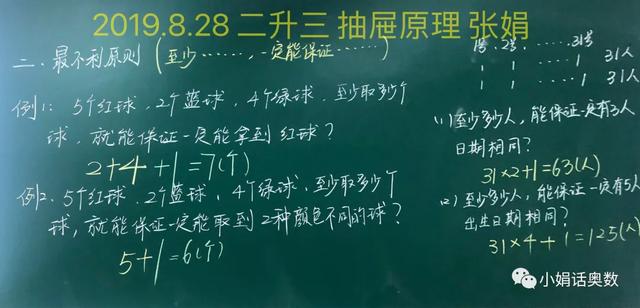 2019.8.28 二升三 抽屉原理 张娟
二、最不利原则(至少……,一定能保证……)
例1:5个红球、2个蓝球、4个绿球,至少取多少个
球,就能保证一定能拿到红球?
2+4+1=7(个)
例2:5个红球、2个蓝球、4个绿球,至少取多少个
球,就能保证一定能取到2种颜色不同的球?
5+1=6(个)
1号 2号 …… 31号
1 1 …… 1 31人
1 1 …… 1 31人
(1)至少多少人,能保证一定有3人
日期相同?
31×2+1=63(人)
(2)至少多少人,能保证一定有5人
出生日期相同?
31×4+1=125(人)
小娟话奥数